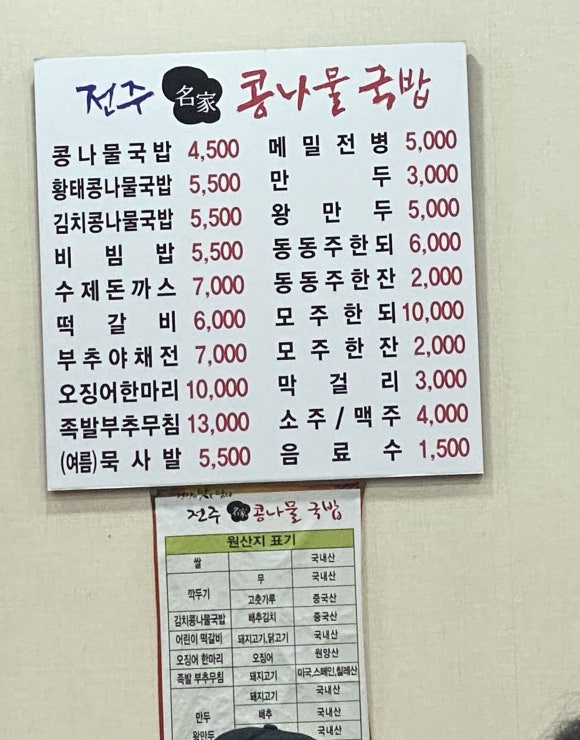 전주 名家 콩나물국밥
콩나물국밥 4,500
황태콩나물국밥 5,500
김치콩나물국밥 5,500
비빔밥 5,500
수제돈까스 7,000
떡갈비 6,000
부추야채전 7,000
오징어한마리 10,000
족발부추무침 13,000
(여름)묵사발 5,500
메밀전병 5,000
만두 3,000
왕만두 5,000
동동주한되 6,000
동동주한잔 2,000
모주한되 10,000
모주한잔 2,000
막걸리 3,000
소주/맥주 4,000
음료수 1,500
전주 콩나물국밥
원산지 표기
쌀 국내산
깍두기 무 국내산
고춧가루 중국산
김치콩나물국밥 배추김치 중국산
어린이 떡갈비 돼지고기,닭고기 국내산
오징어 한마리 오징어 원양산
족발 부추무침 돼지고기 미국,스페인,칠레산
돼지고기 국내산
만두 배추 국내산
왕만두 국내산